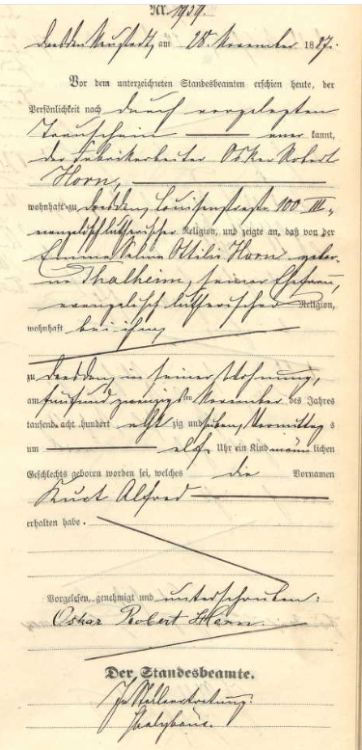 Nr. 1929.
Dresden Neustadt, am 28. November 1887.
Vor dem unterzeichneten Standesbeamten erschien heute, der
Persönlichkeit nach durch vorgelegten
Trauschein anerkannt,
der Fabrikarbeiter Oskar Robert
Horn,
wohnhaft zu Dresden, Louisenstraße 100 III,
evangelisch lutherischer Religion, und zeigte an, daß von der
Emma Selma Ottilie Horn gebor-
ne Thalheim, seiner Ehefrau,
evangelisch lutherischer Religion,
wohnhaft bei ihm,
zu Dresden, in seiner Wohnung,
am fünfundzwanzigsten November des Jahres
tausend acht hundert achtzig und sieben, Vormittags
um elf Uhr ein Kind männlichen
Geschlechts geboren worden sei, welches die Vornamen
Kurt Alfred
erhalten habe.
Vorgelesen, genehmigt und unterschrieben:
Oskar Robert Horn.
Der Standesbeamte.
In Stellvertretung: